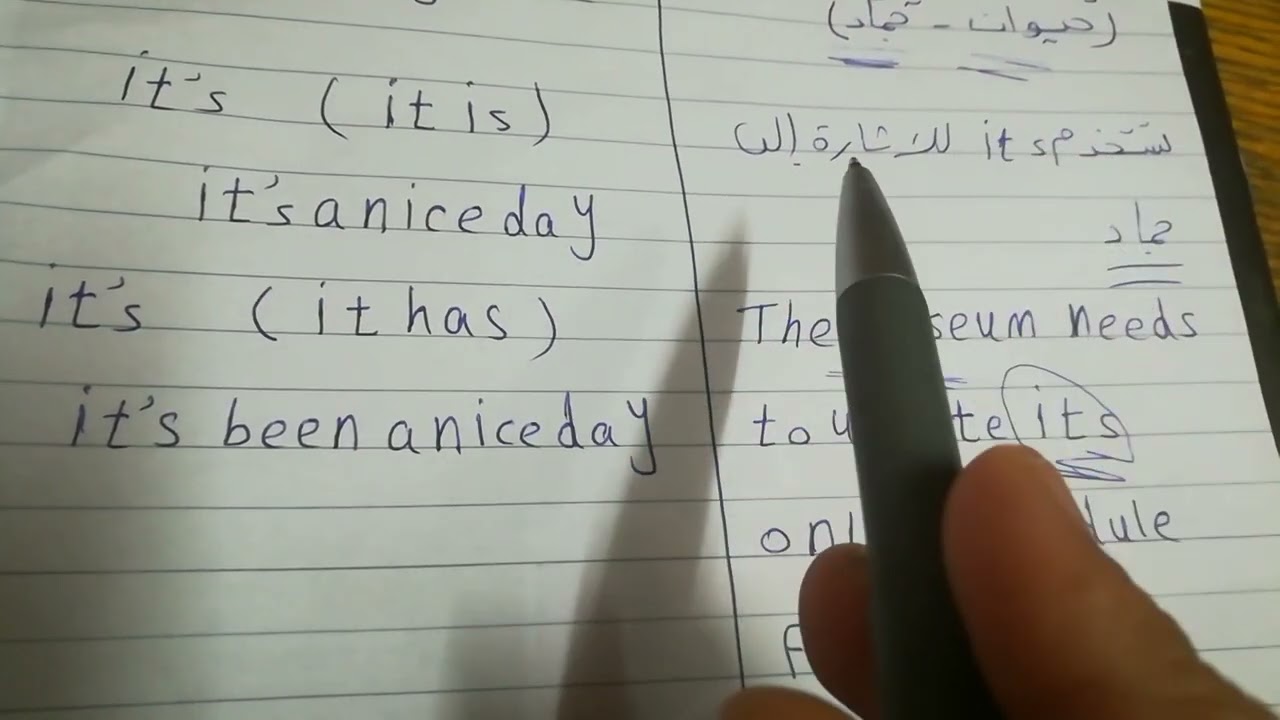 it's ( it is )
it's a nice day
it's ( it has )
it's been a nice day
(حيوان - جماد)
نستخدم its للاشارة إلى
جماد
The needs
to its